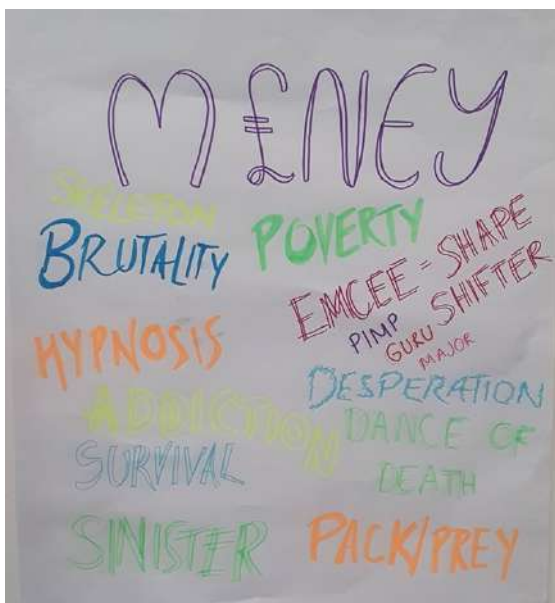 M£NEY
SKELETON
BRUTALITY
POVERTY
EMCEE = SHAPE
SHIFTER
PIMP
GURU
MAJOR
HYPNOSIS
DESPERATION
ADDICTION
DANCE OF
DEATH
SURVIVAL
SINISTER
PACK/PREY